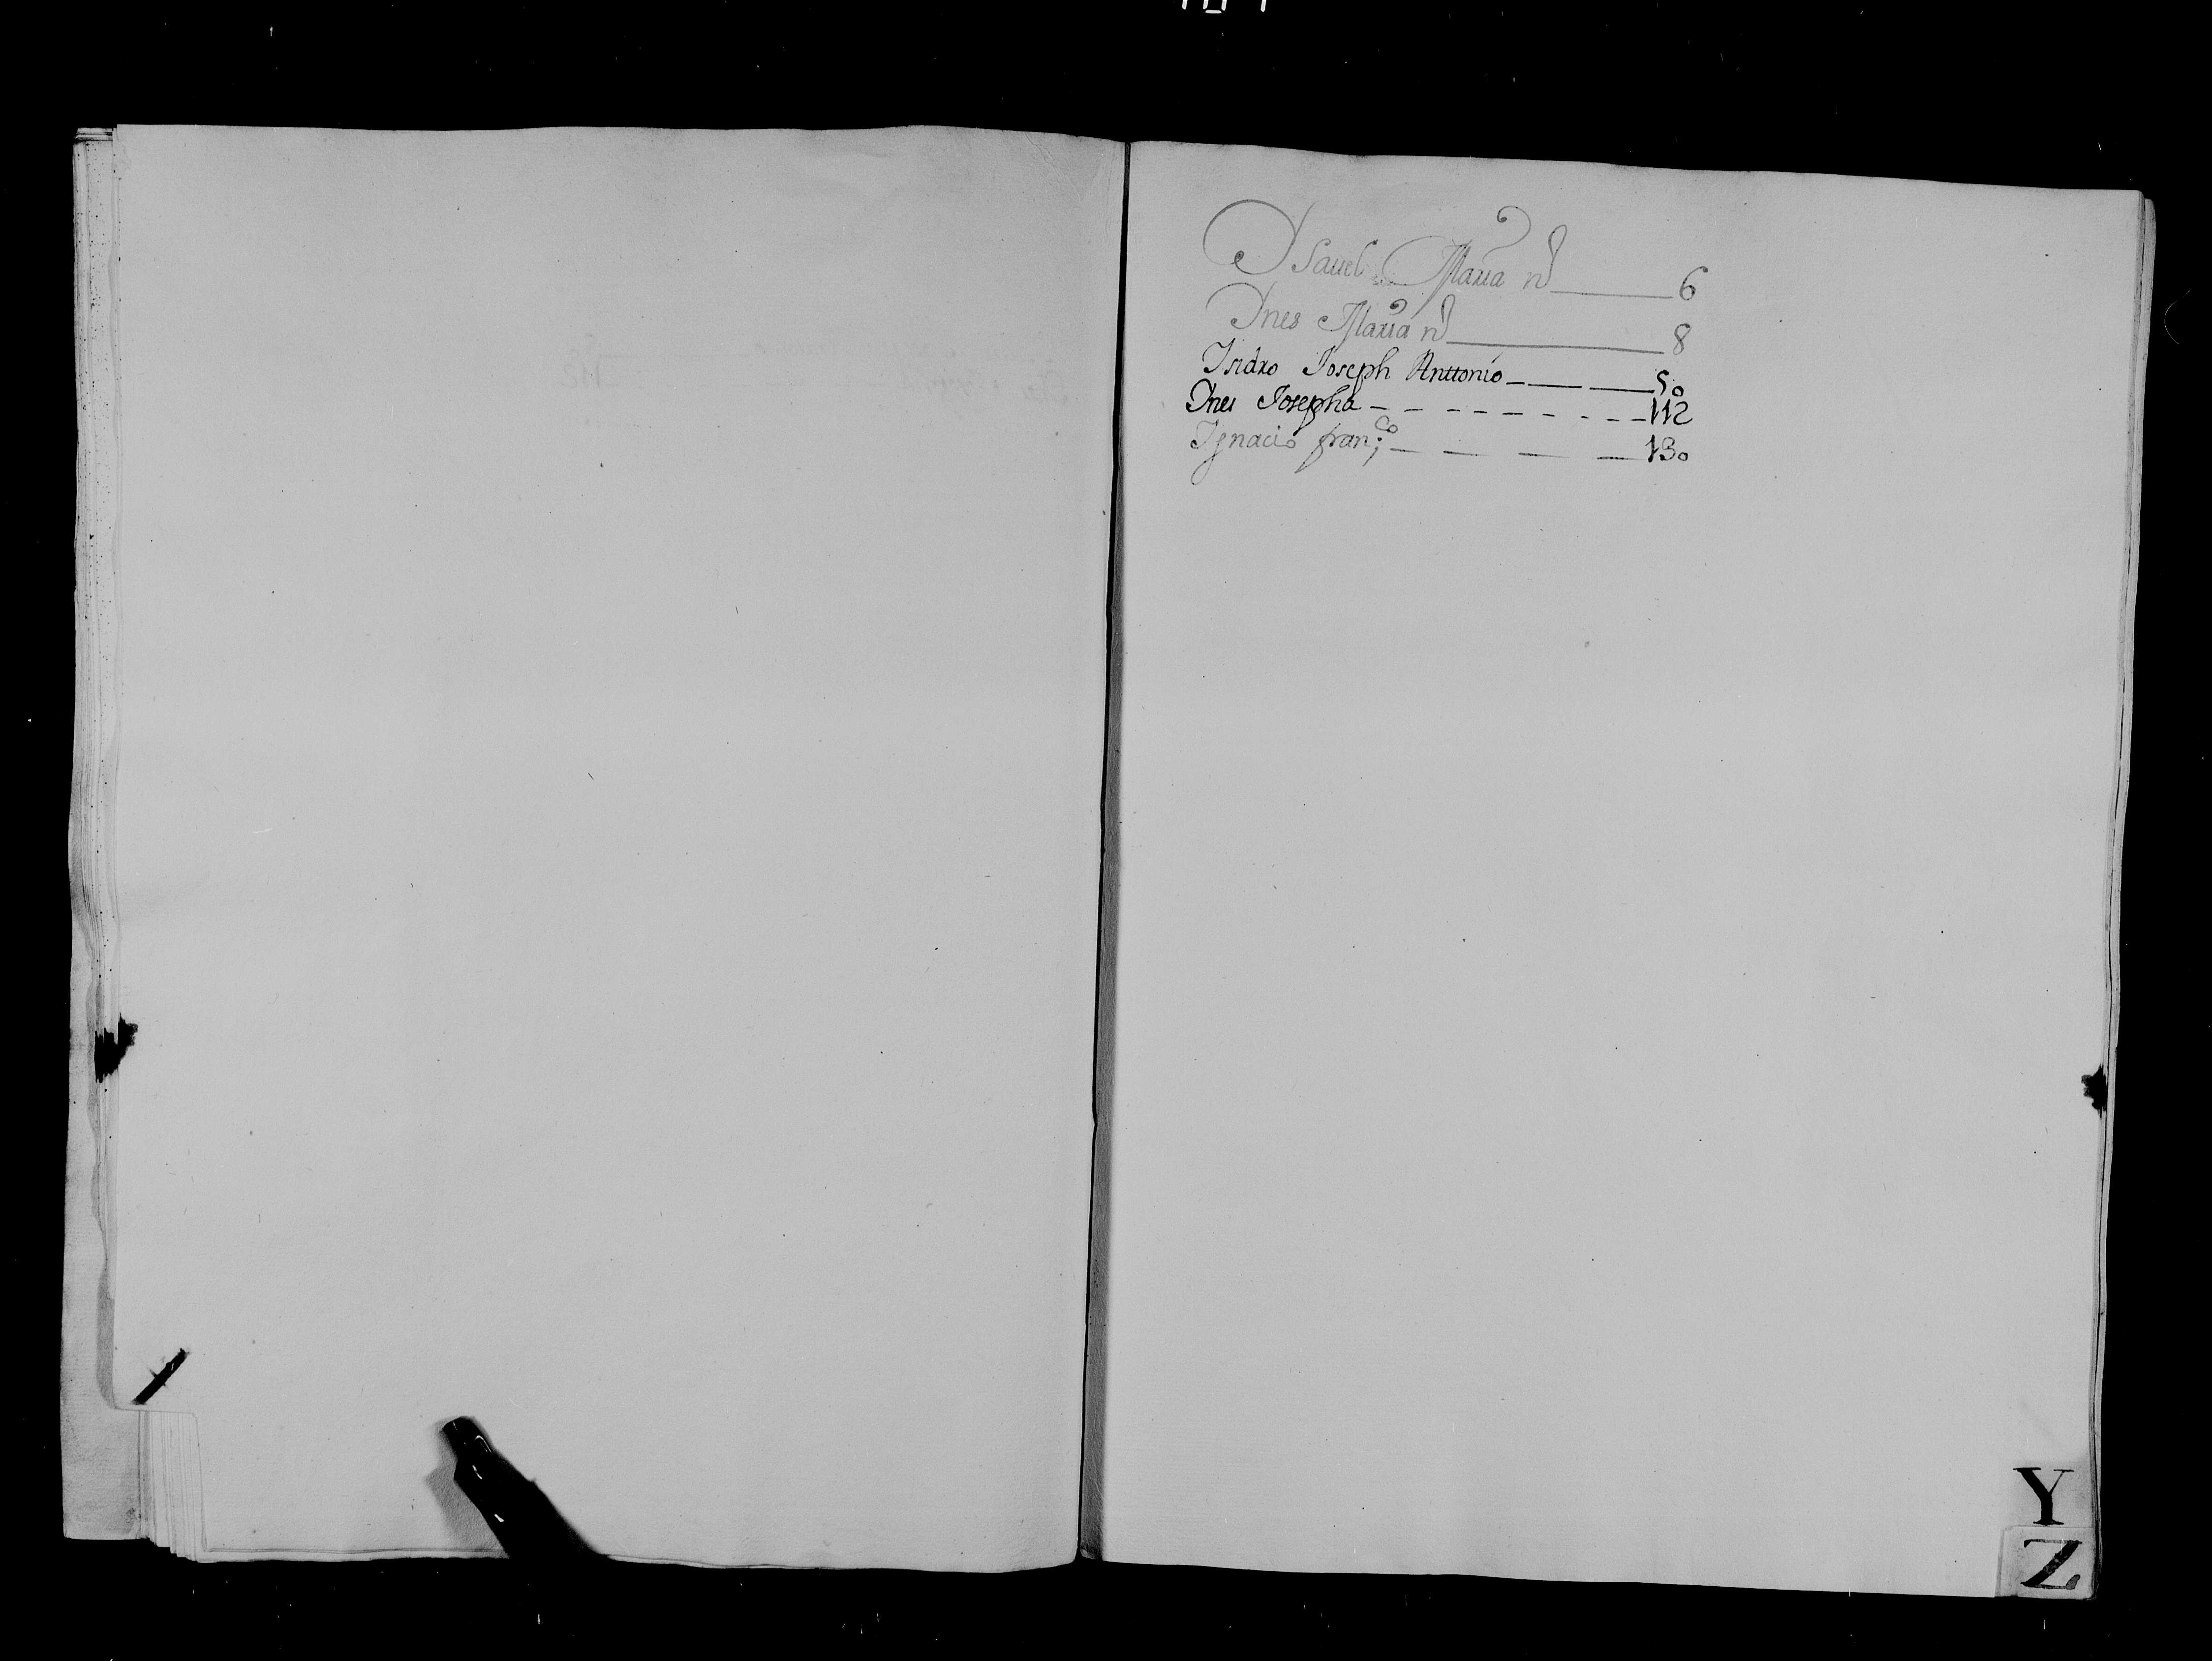 Ysauel Maria nº 6
Ynes Maria nº 8
Isidro Joseph Anttonio 50
Ynes Josepha 112
Ignacio franco; 130
Y
Z